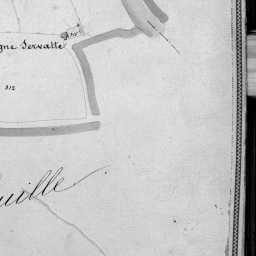 gne Servatte
312
uille